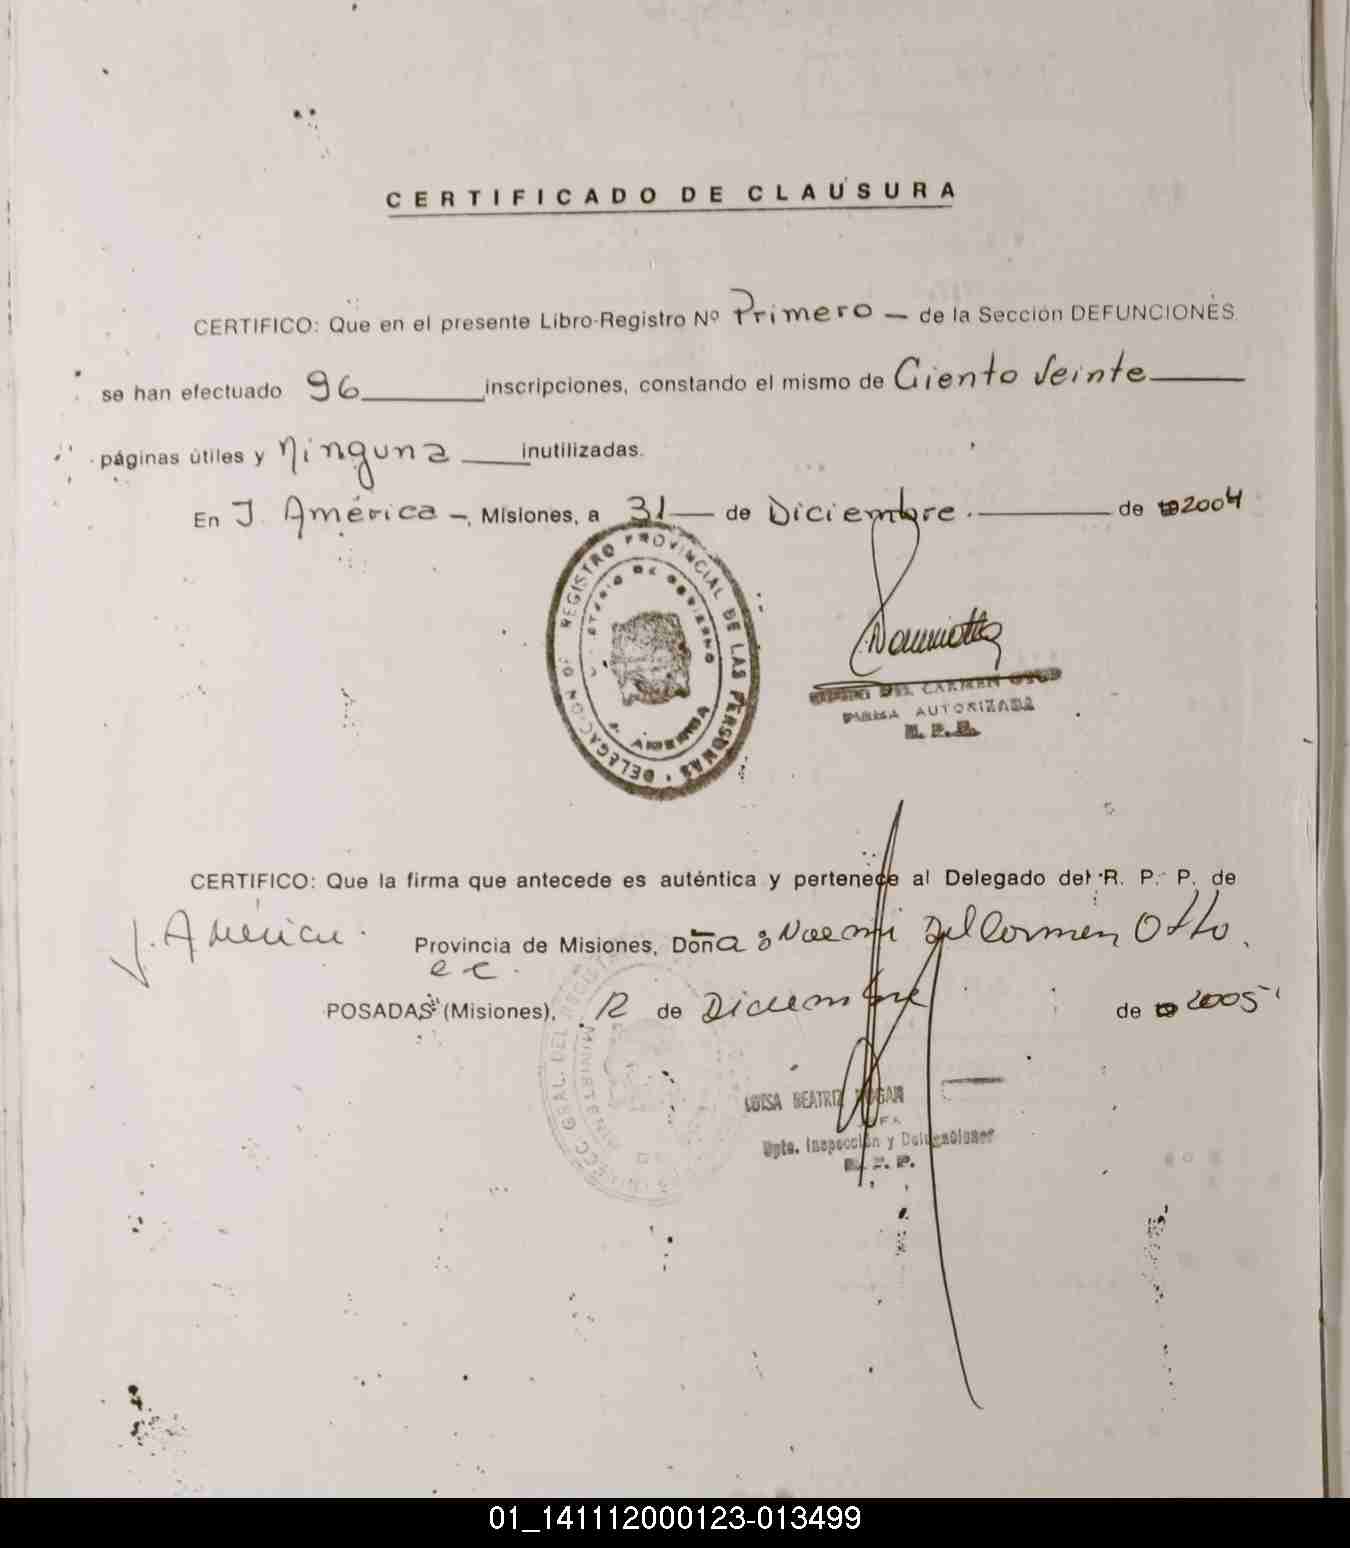 CERTIFICADO DE CLAUSURA
CERTIFICO: Que en el presente Libro-Registro Nº Primero — de la Sección DEFUNCIONES
se han efectuado 96 inscripciones, constando el mismo de Ciento Veinte
páginas útiles y Ninguna inutilizadas.
En J. América -, Misiones, a 31 de Diciembre. de 2004
DELEGACION REGISTRO PROVINCIAL DE LAS PERSONAS
DE GOBIERNO
DEL CARMEN OTTO
FIRMA AUTORIZADA
R. P. P.
CERTIFICO: Que la firma que antecede es auténtica y pertenece al Delegado del R. P. P. de
J. América. Provincia de Misiones, Doña Noemi Del Carmen Otto.
POSADAS (Misiones), 12 de Diciembre de 2005
LUISA BEATRIZ
Dpto. Inspección y Delegaciones
R. P. P.
01_141112000123-013499